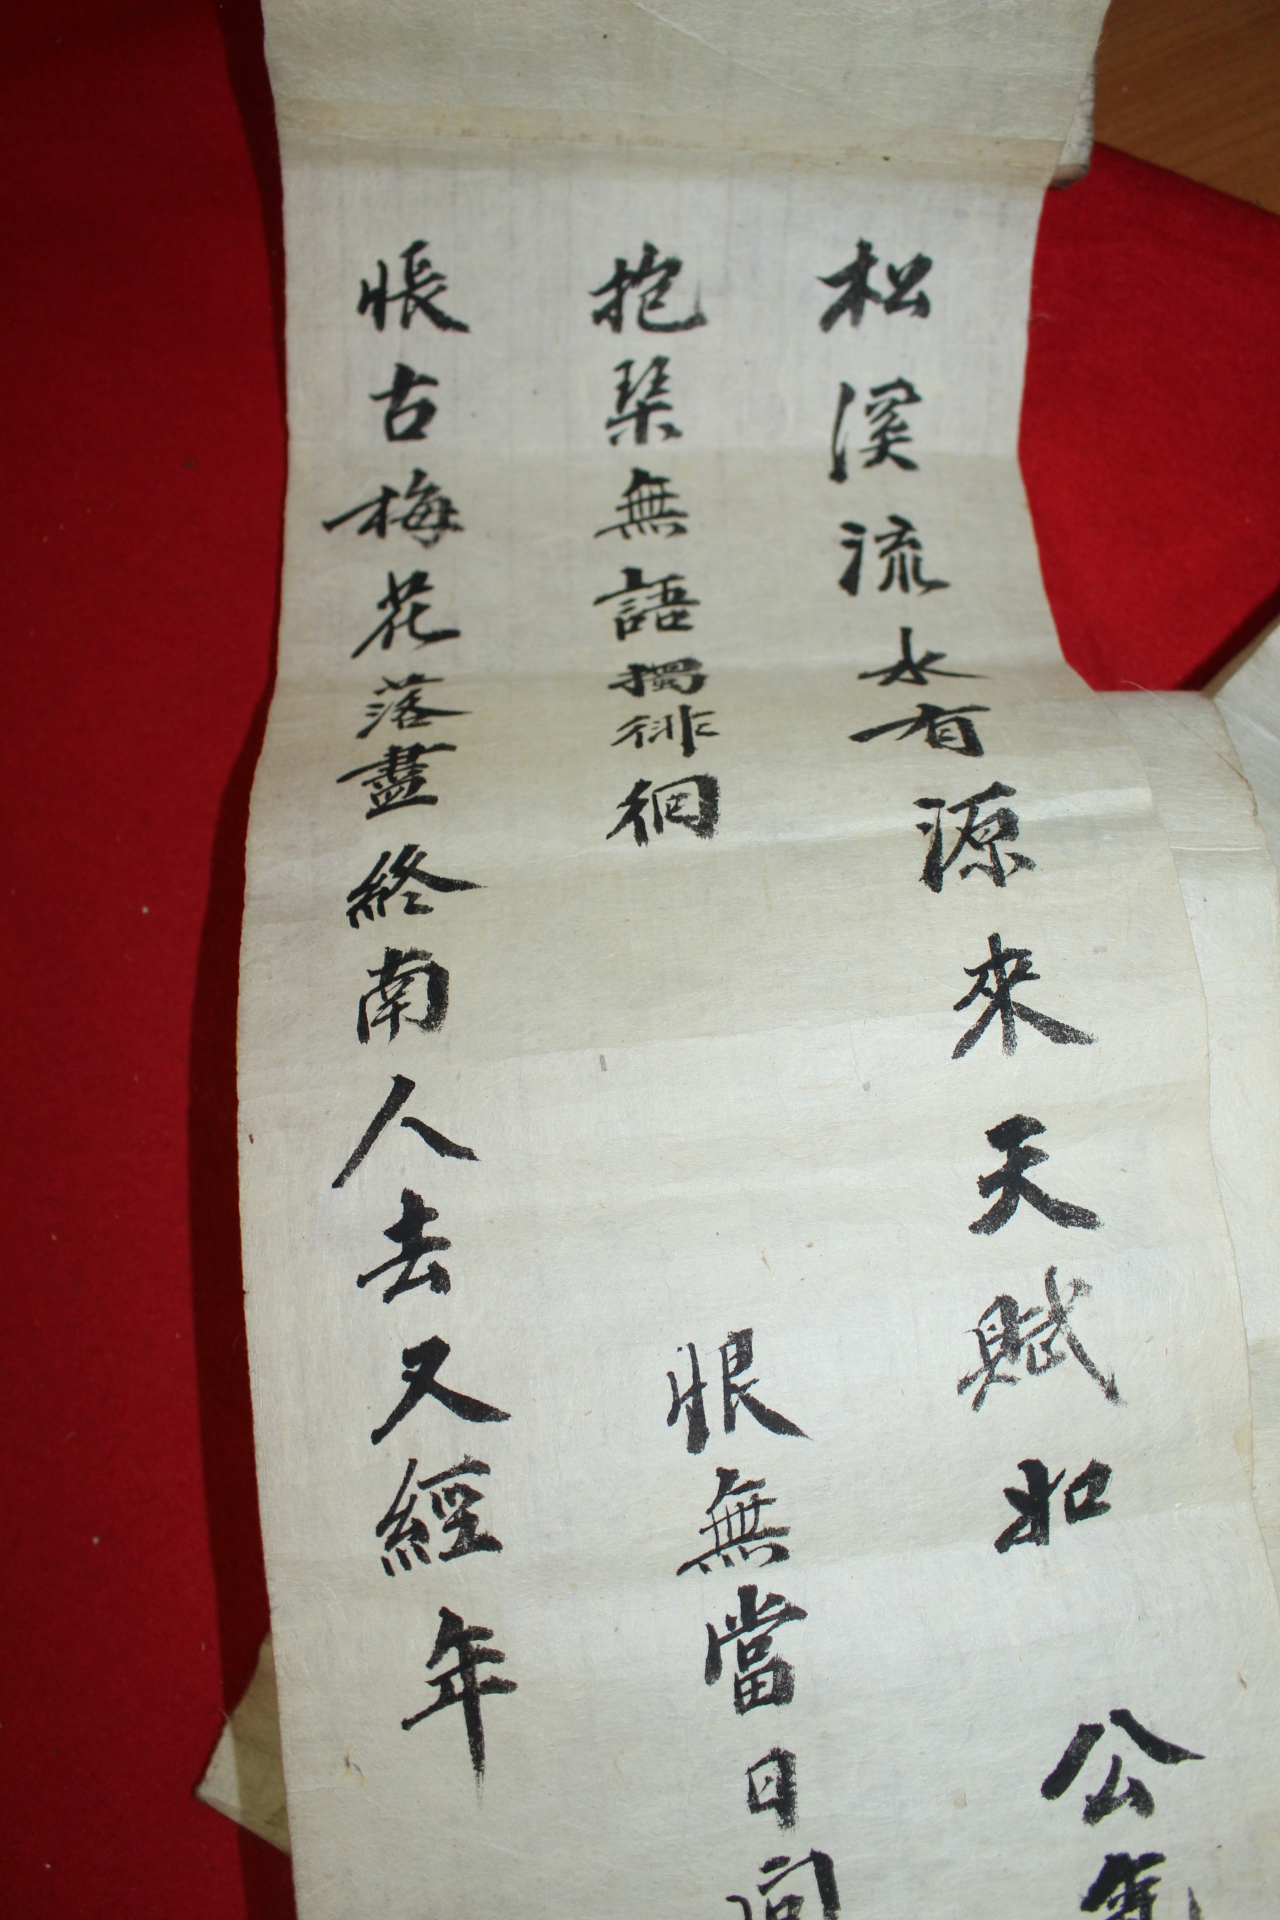 松溪流水有源來天賦如公氣
抱琹無語獨徘徊 恨無當日同
悵古梅花落盡終南人去又經年